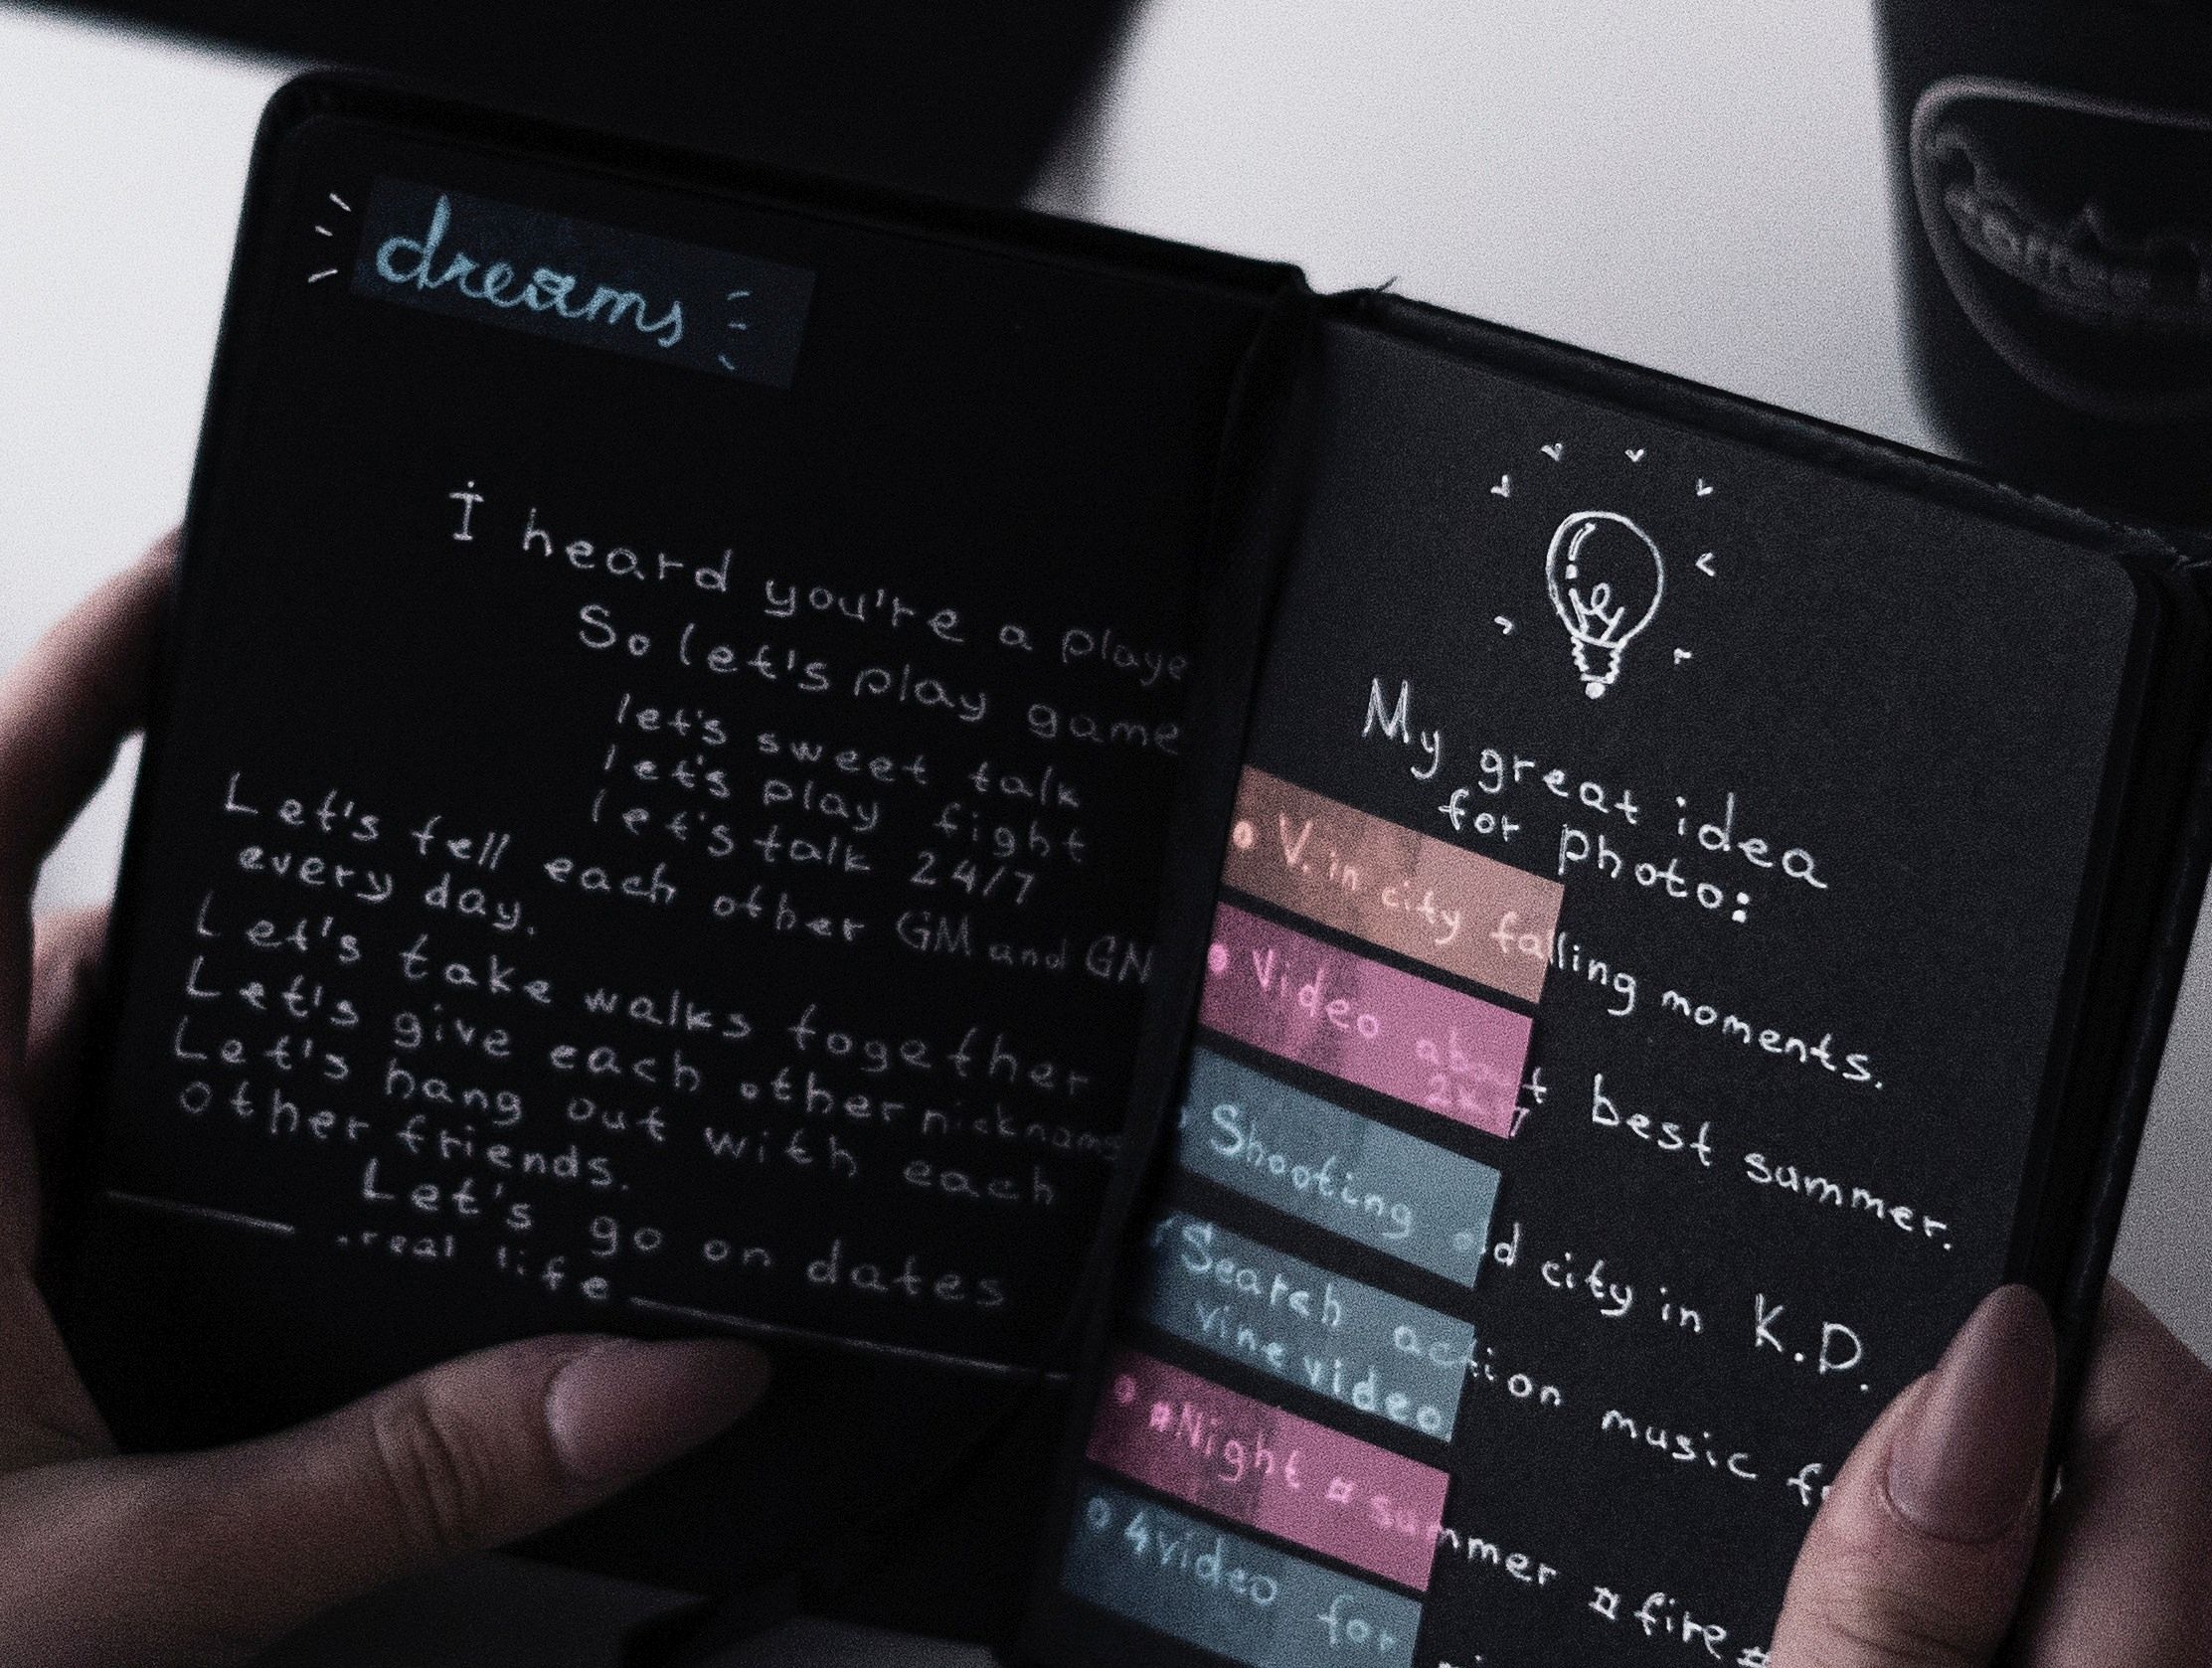 dreams
I heard you're a playe
So let's play game
let's sweet talk
let's play fight
let's talk 24/7
Let's fell each other GM and GN
every day.
Let's take walks together
Let's give each other nicknames
Let's hang out with each
other friends.
Let's go on dates
real life
My great idea
for photo:
V. in city falling moments.
Video about best summer.
Shooting old city in K.D.
Search action music f
Vine video
#Night #summer #fire #
4video for